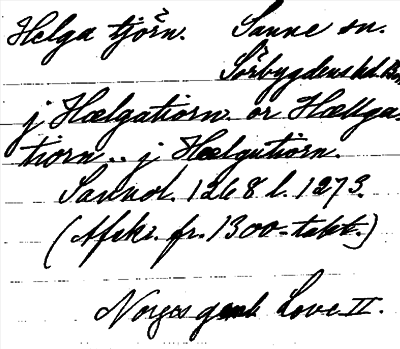 Helga tjörn. Sanne sn.
Sörbygdens hd. Boh
j Hælgatiorn. or Hællga-
tiorn.. j Hælgutiorn.
Sannol. 1268 l. 1273.
(Afskr. fr. 1300-talet.)
Norges gamle Love II.